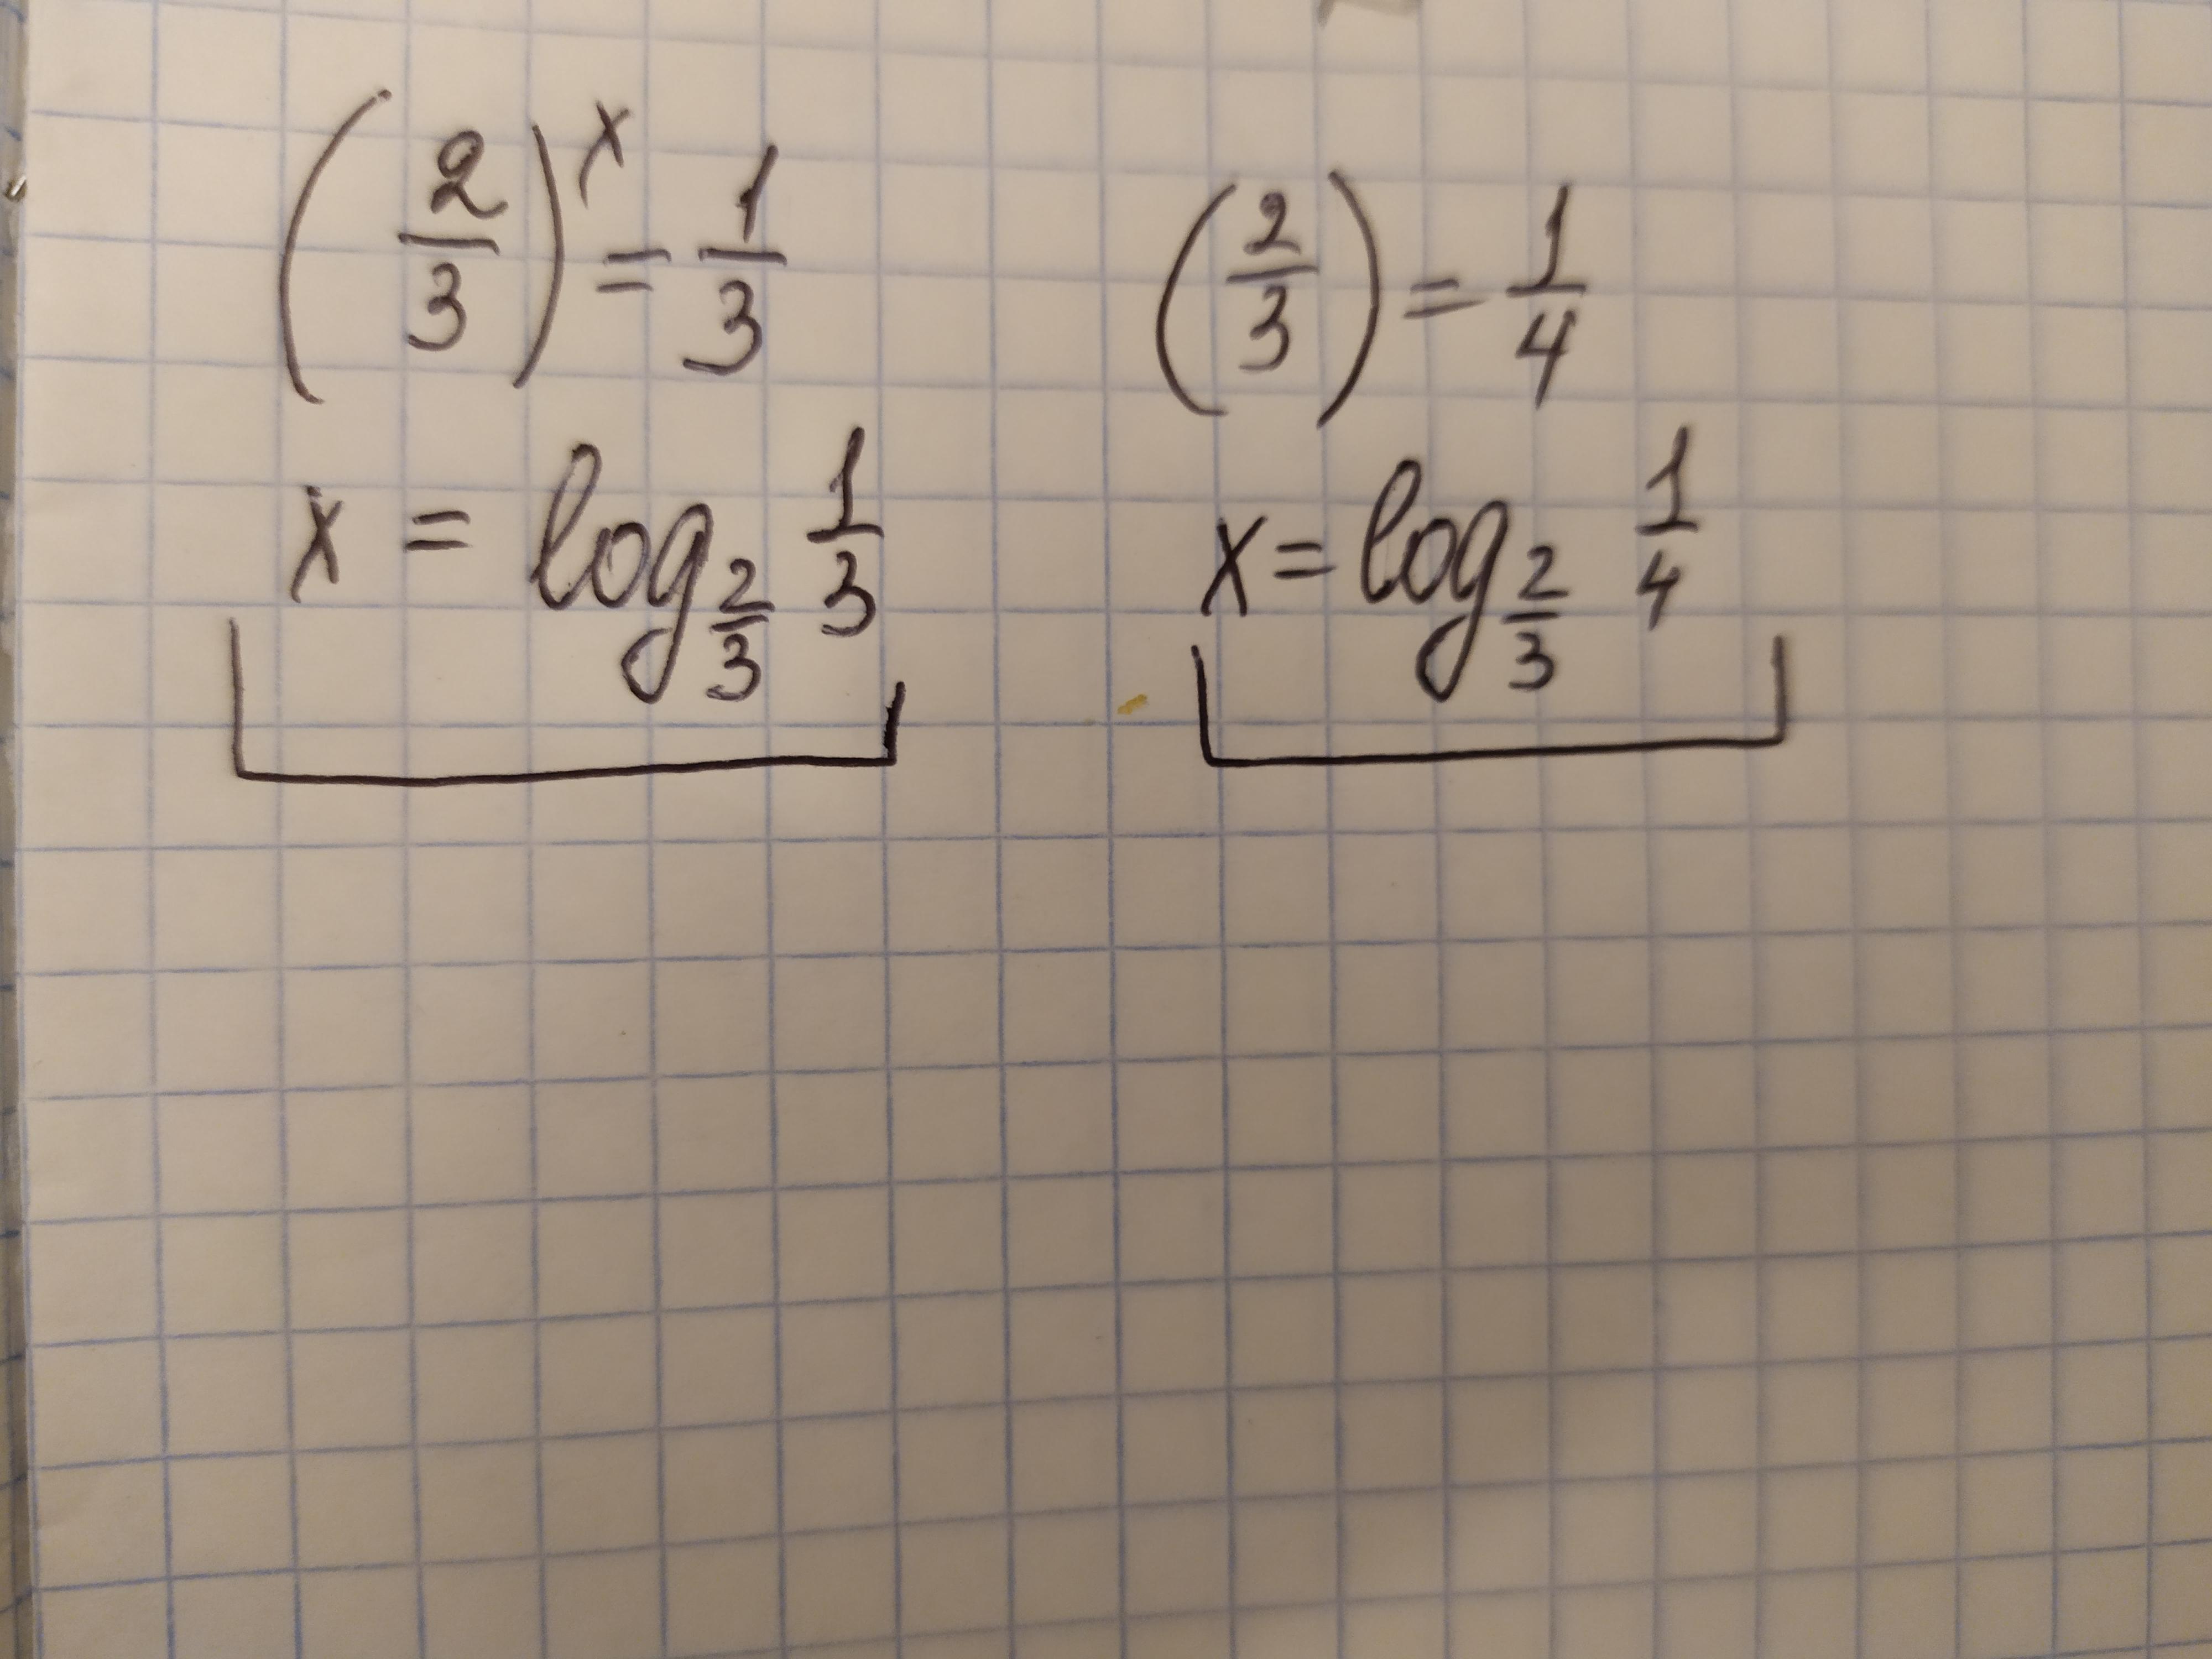 (2/3)^x = 1/3
x = log_{2/3} 1/3
(2/3) = 1/4
x = log_{2/3} 1/4